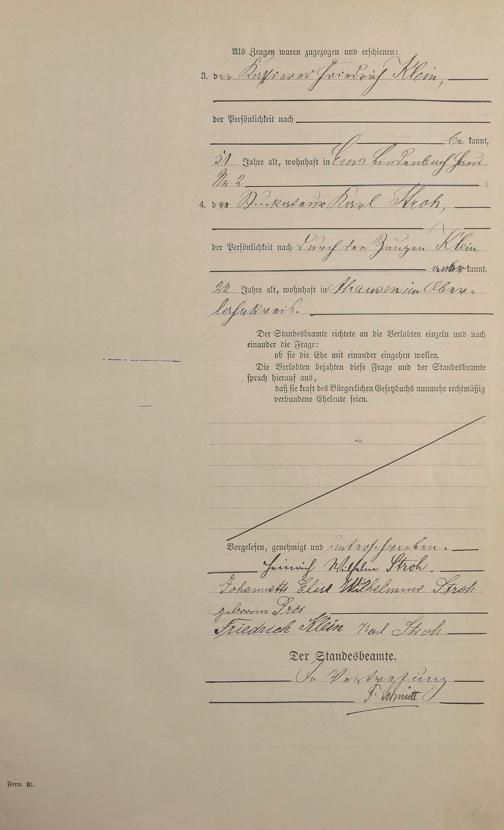 Als Zeugen waren zugezogen und erschienen:
3. der Kassierer Friedrich Klein,
der Persönlichkeit nach
be kannt,
51 Jahre alt, wohnhaft in Ems Lindenbach Haus
Nr 2 ;
4. der Stukateur Karl Stroh,
der Persönlichkeit nach durch den Zeugen Klein
anerkannt,
22 Jahre alt, wohnhaft in im Ober-
lahnkreis.
Der Standesbeamte richtete an die Verlobten einzeln und nach
einander die Frage:
ob sie die Ehe mit einander eingehen wollen.
Die Verlobten bejahten diese Frage und der Standesbeamte
sprach hierauf aus,
daß sie kraft des Bürgerlichen Gesetzbuchs nunmehr rechtmäßig
verbundene Eheleute seien.
Vorgelesen, genehmigt und unterschrieben.
Heinrich Wilhelm Stroh.
Johannette Elise Wilhelmine Stroh
geborene
Friedrich Klein Karl Stroh
Der Standesbeamte.
In Vertretung
F. Schmitt
Form. B.